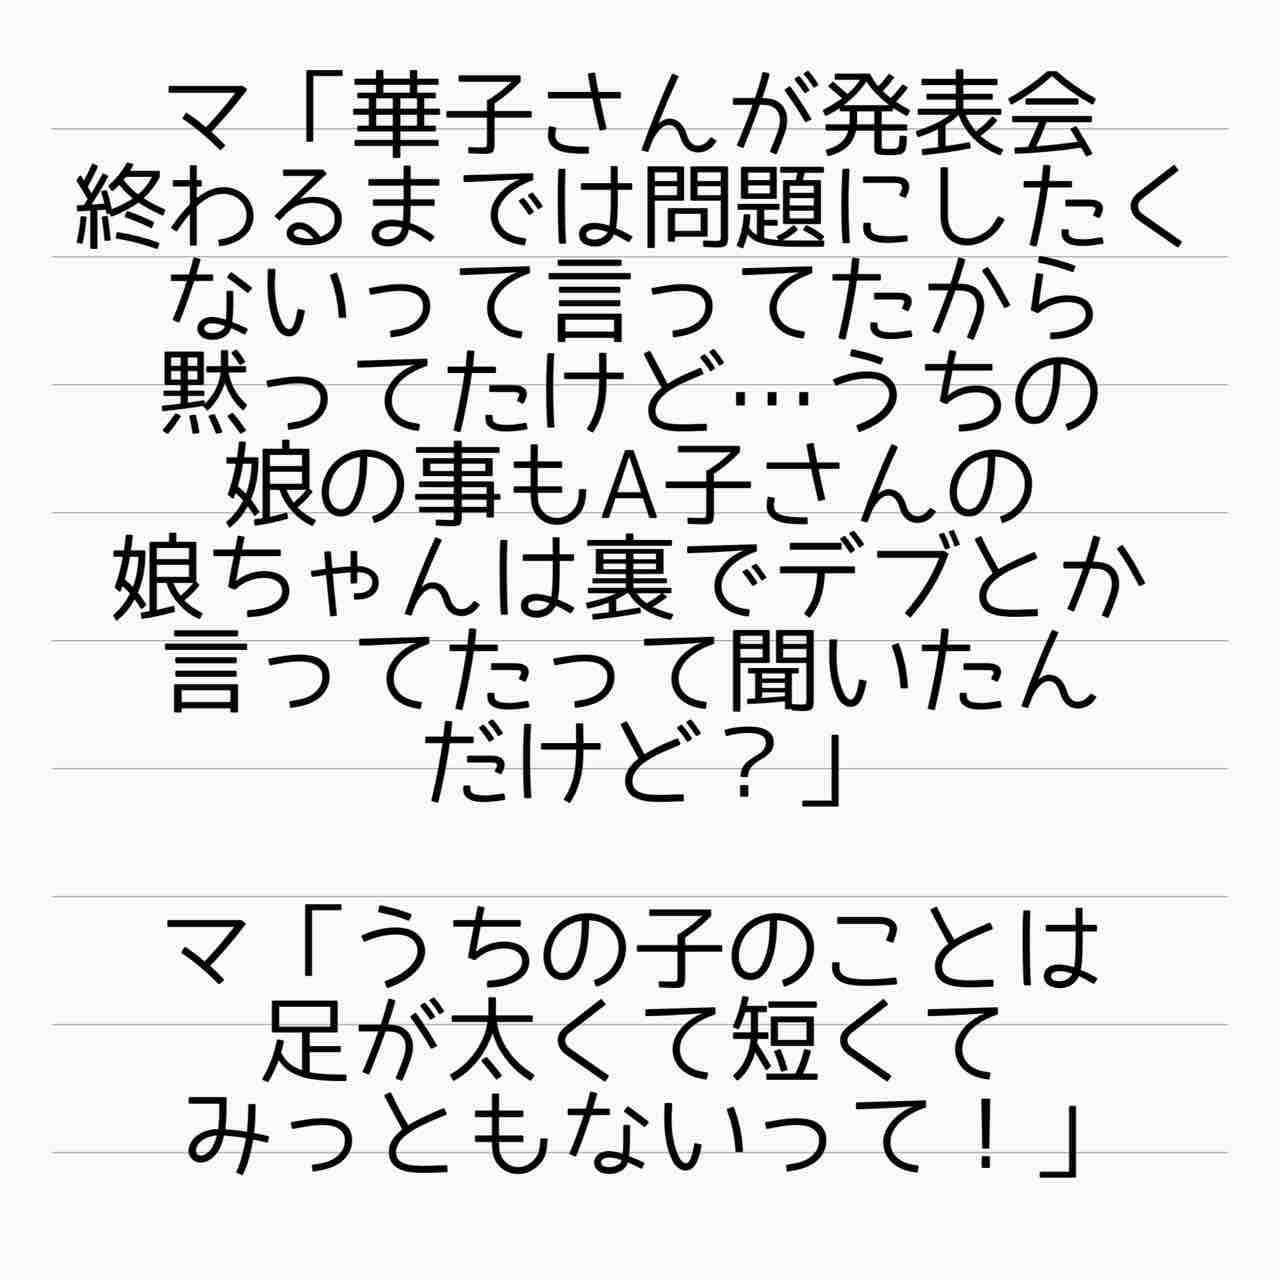 マ「華子さんが発表会
終わるまでは問題にしたく
ないって言ってたから
黙ってたけど…うちの
娘の事もA子さんの
娘ちゃんは裏でデブとか
言ってたって聞いたん
だけど？」
マ「うちの子のことは
足が太くて短くて
みっともないって！」